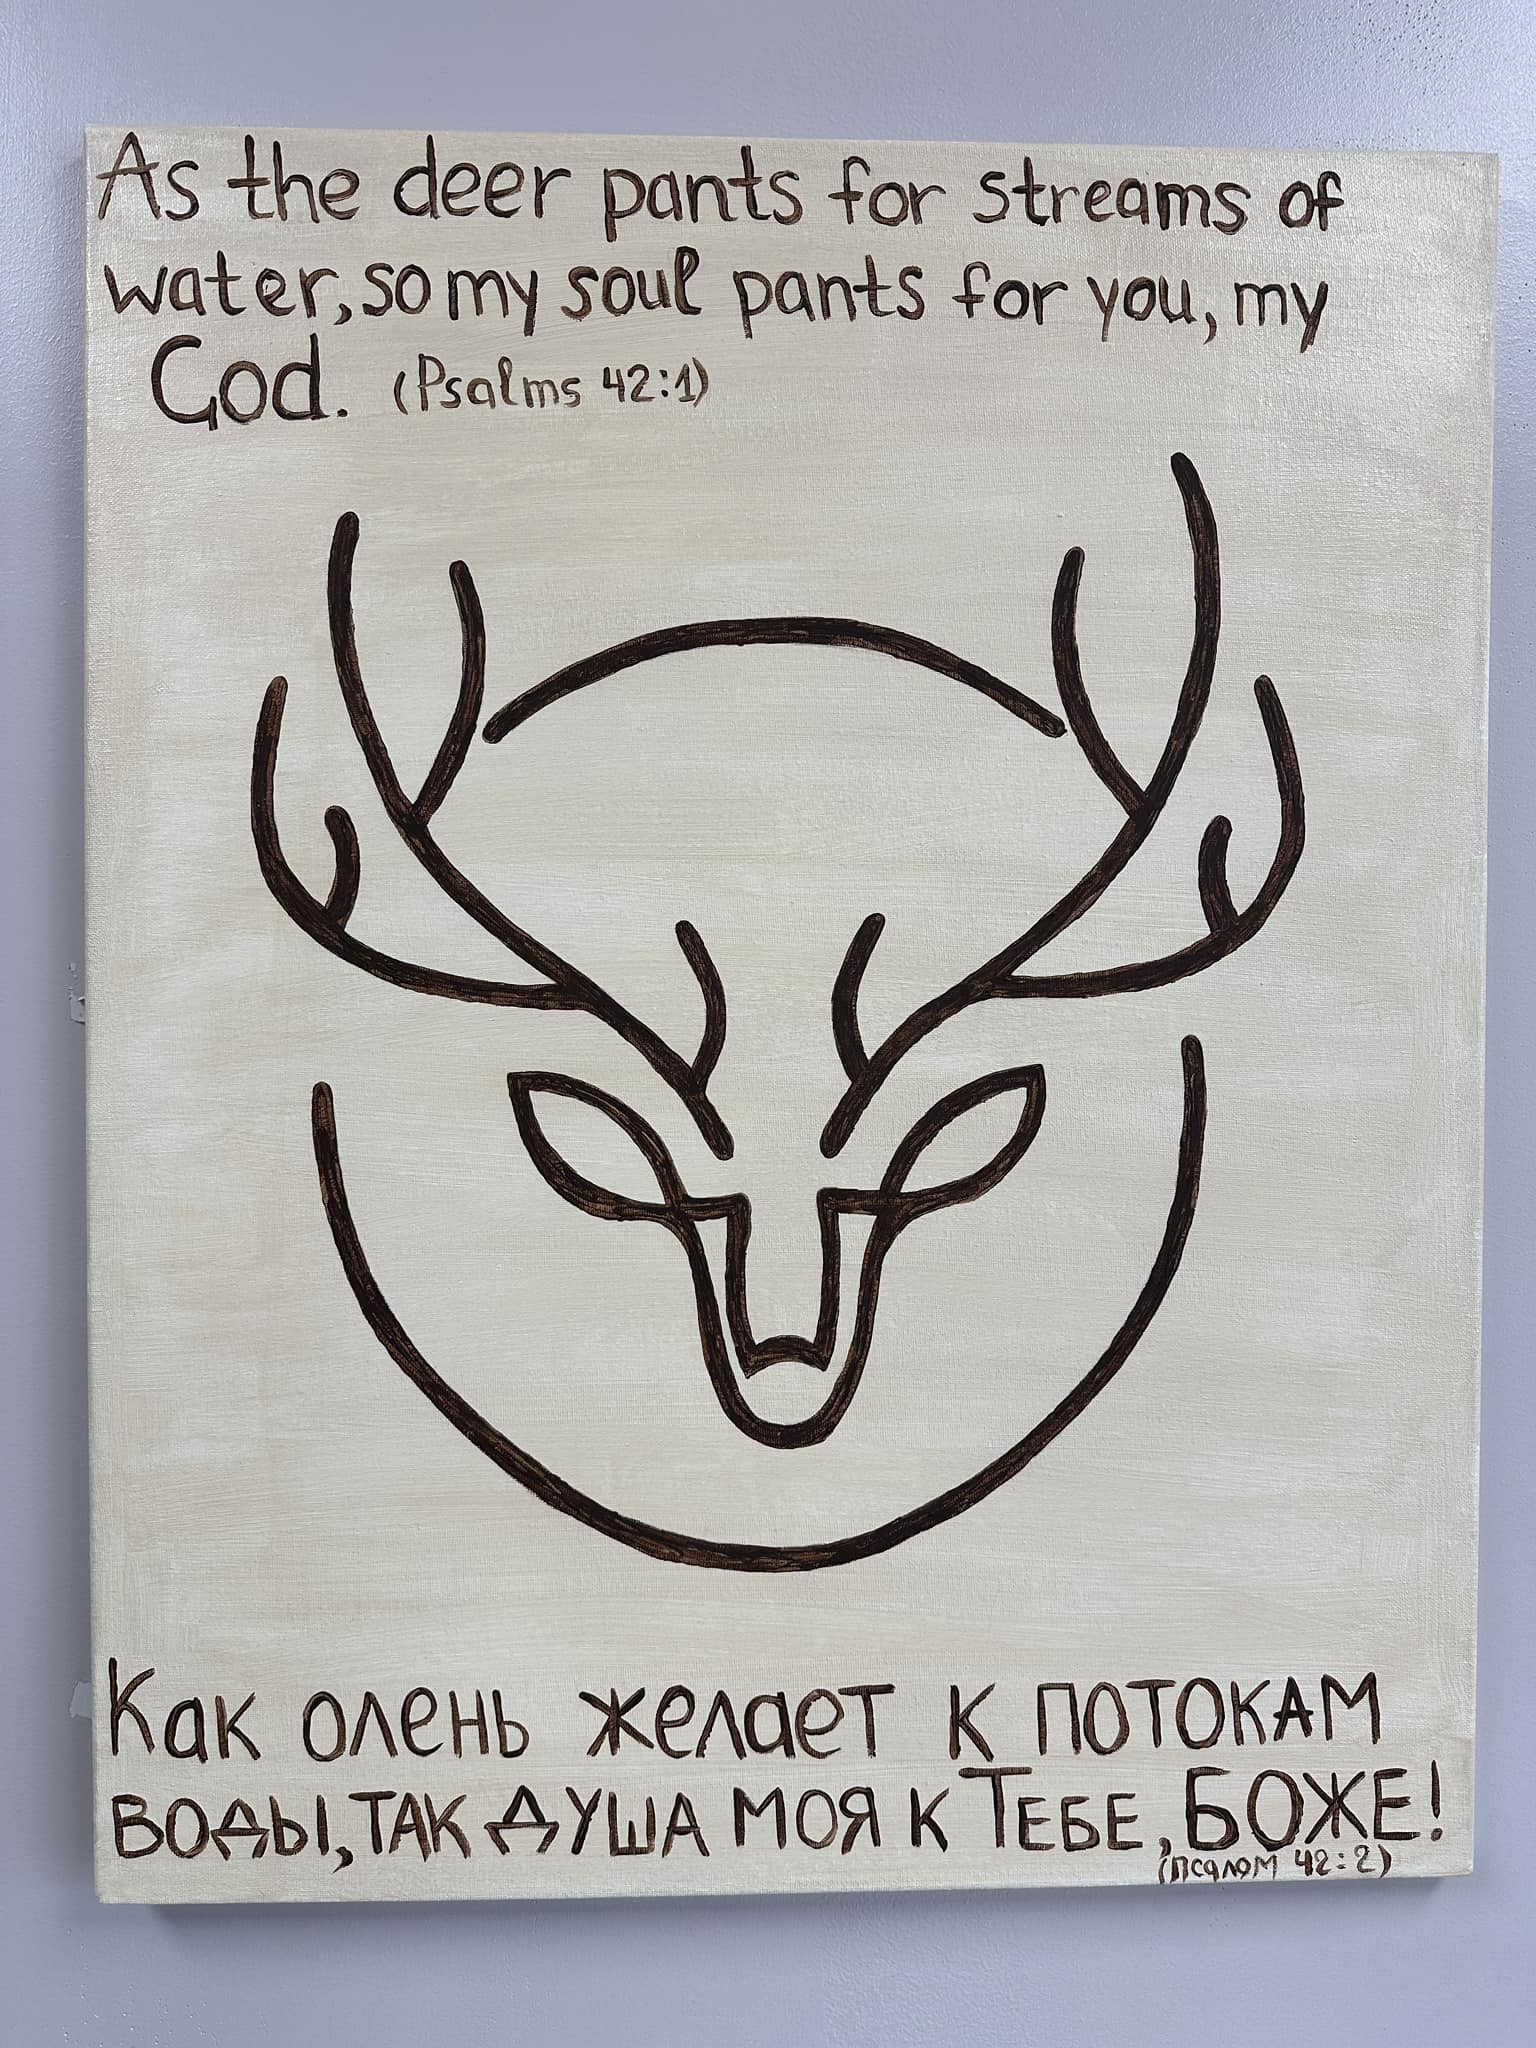 As the deer pants for streams of
water, so my soul pants for you, my
God. (Psalms 42:1)
Как олень желает к ПОТОКАМ
ВОДЫ, ТАК ДУША МОЯ К ТЕБЕ, БОЖЕ!
(псалом 42:2)